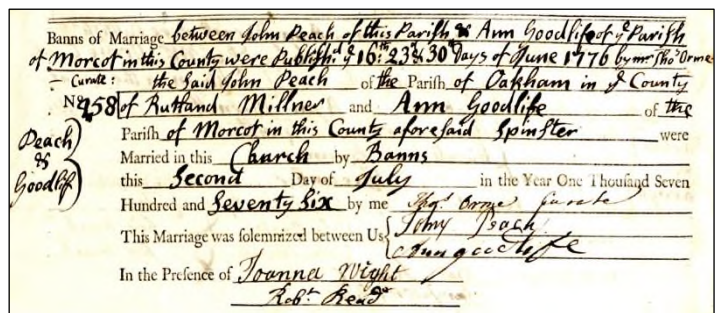 Banns of Marriage between John Peach of this Parish & Ann Goodlife of ye Parish
of Morcot in this County were Publishd ye 16th 23d & 30th Days of June 1776 by mr Thos Orme
Curate: the Said John Peach of the Parish of Oakham in ye County
No 258 of Rutland Millner and Ann Goodlife of the
Peach & Goodlif
Parish of Morcot in this County aforesaid Spinster were
Married in this Church by Banns
this Second Day of July in the Year One Thousand Seven
Hundred and Seventy Six by me Thos Orme Curate
This Marriage was solemnized between Us { John Peach
Ann goodlife
In the Presence of Joanna Wight
Robt Read